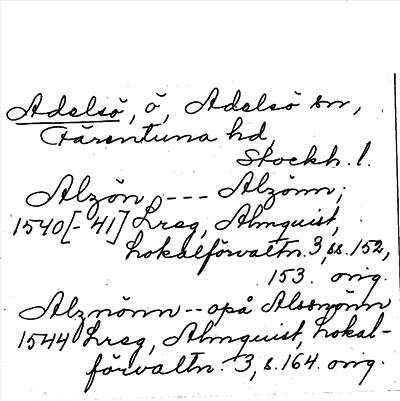 Adelsö, ö, Adelsö sn,
Färentuna hd,
Stockh. l.
Alzön, --- Alzönn,
1540[-41] Lreg, Almquist,
Lokalförvaltn. 3, ss. 152,
153. orig.
Alznönn -- opå Alssnönn
1544 Lreg, Almquist, Lokal-
förvaltn. 3, s. 164. orig.